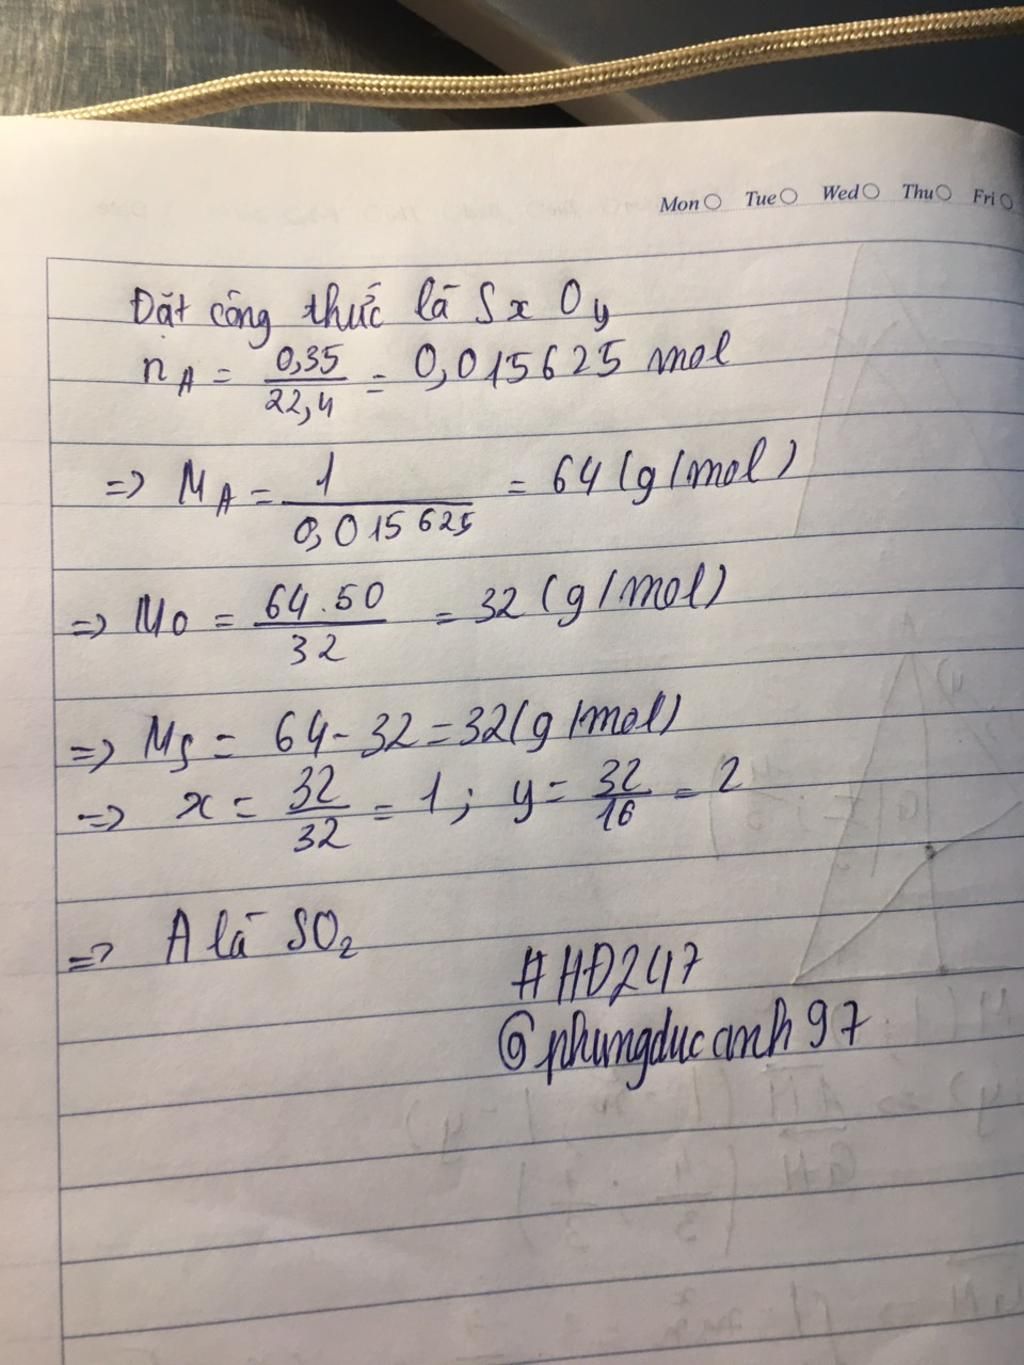 Mon Tue Wed Thu Fri
Đặt công thức là SxOy
nA = 0,35/22,4 = 0,015625 mol
=> MA = 1/0,015625 = 64 (g/mol)
=> MO = 64.50/32 = 32 (g/mol)
=> MS = 64 - 32 = 32 (g/mol)
=> x = 32/32 = 1; y = 32/16 = 2
=> A là SO2
#HĐ247
@phungducanh97